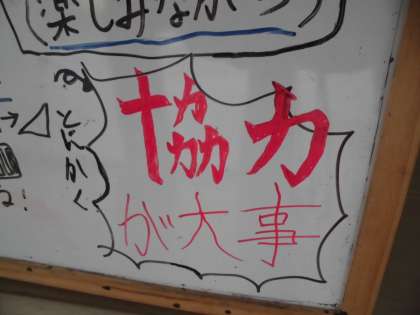 (楽しみながら)
とにかく
協力
が大事